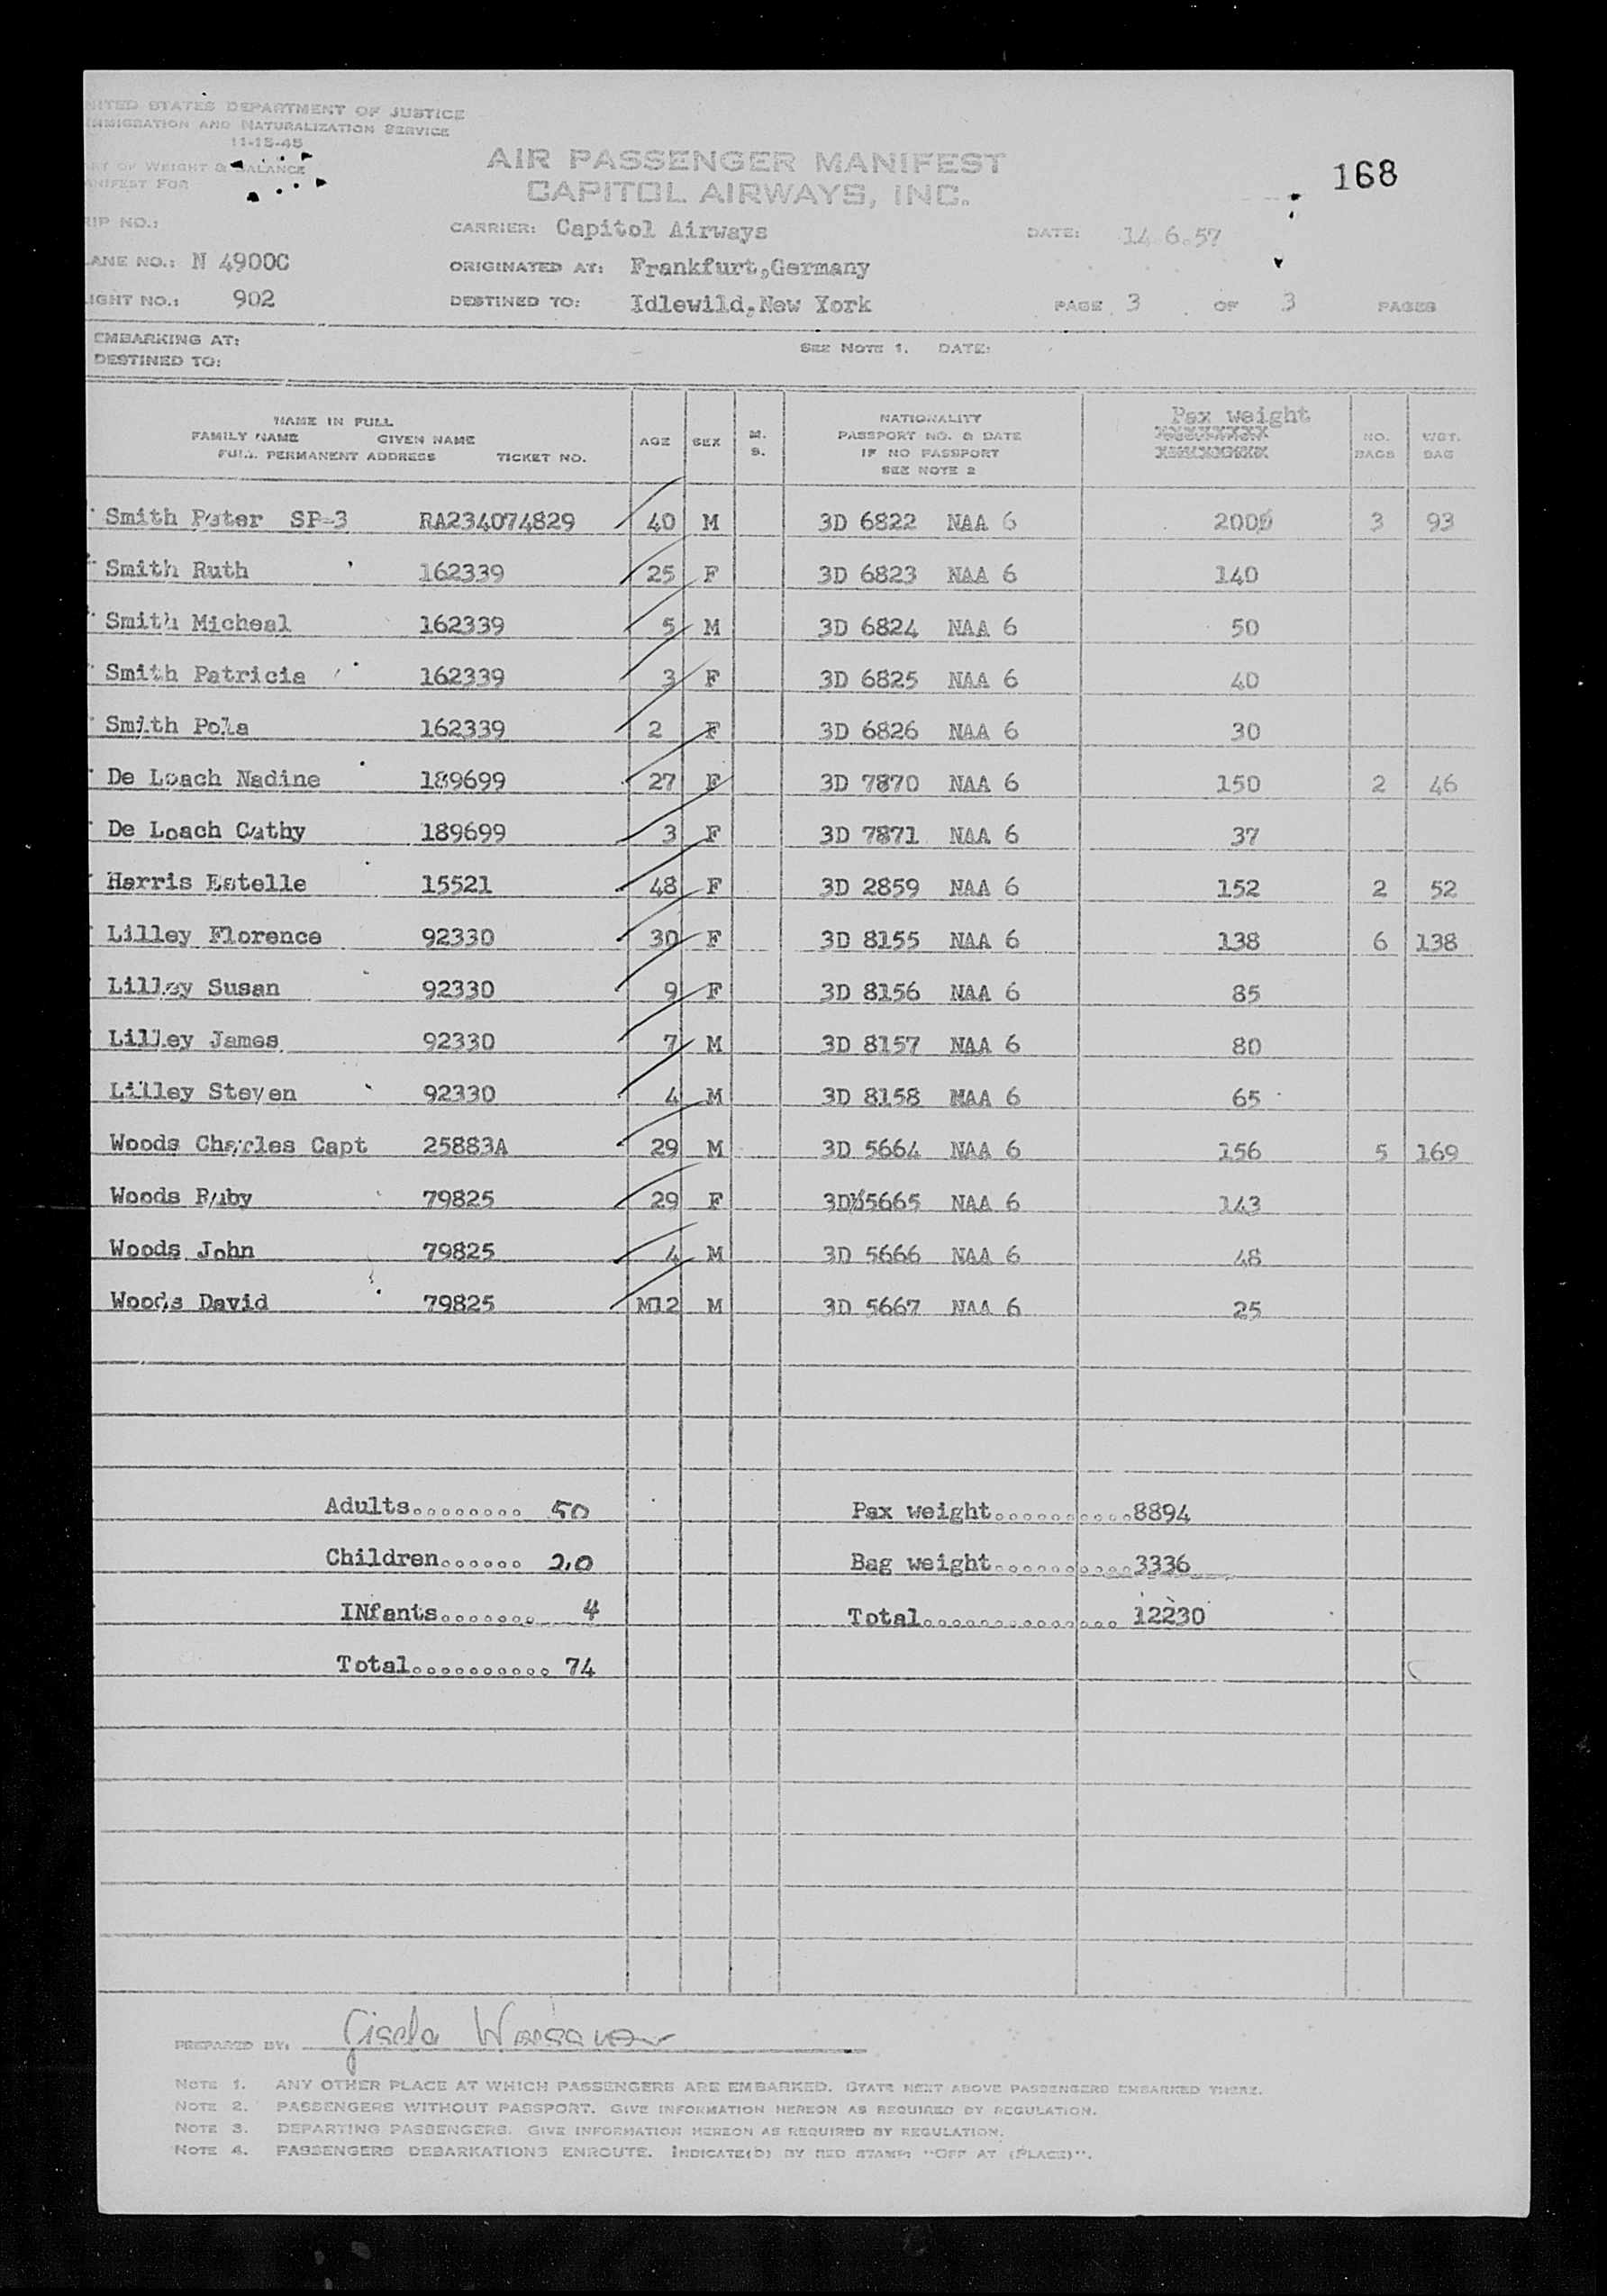 NITED STATES DEPARTMENT OF JUSTICE
IMMIGRATION AND NATURALIZATION SERVICE
11-15-45
ART OF WEIGHT & BALANCE
ANIFEST FOR
AIR PASSENGER MANIFEST
CAPITOL AIRWAYS, INC.
168
RIP NO.:
CARRIER: Capitol Airways
DATE: 14.6.57
LANE NO.: N 4900C
ORIGINATED AT: Frankfurt,Germany
LIGHT NO.: 902
DESTINED TO: Idlewild,New York
PAGE 3 OF 3 PAGES
EMBARKING AT:
SEE NOTE 1. DATE:
DESTINED TO:
NAME IN FULL
FAMILY NAME GIVEN NAME
FULL PERMANENT ADDRESS TICKET NO.
AGE
SEX
M.
S.
NATIONALITY
PASSPORT NO. & DATE
IF NO PASSPORT
SEE NOTE 2
Pax weight
NO.
BAGS
WGT.
BAG
Smith Peter SP-3 RA234074829 40 M 3D 6822 NAA 6 2000 3 93
Smith Ruth 162339 25 F 3D 6823 NAA 6 140
Smith Micheal 162339 5 M 3D 6824 NAA 6 50
Smith Patricia 162339 3 F 3D 6825 NAA 6 40
Smith Pola 162339 2 F 3D 6826 NAA 6 30
De Loach Nadine 189699 27 F 3D 7870 NAA 6 150 2 46
De Loach Cathy 189699 3 F 3D 7871 NAA 6 37
Harris Estelle 15521 48 F 3D 2859 NAA 6 152 2 52
Lilley Florence 92330 30 F 3D 8155 NAA 6 138 6 138
Lilley Susan 92330 9 F 3D 8156 NAA 6 85
Lilley James 92330 7 M 3D 8157 NAA 6 80
Lilley Steven 92330 4 M 3D 8158 NAA 6 65
Woods Charles Capt 25883A 29 M 3D 5664 NAA 6 156 5 169
Woods Ruby 79825 29 F 3D 5665 NAA 6 143
Woods John 79825 4 M 3D 5666 NAA 6 48
Woods David 79825 M12 M 3D 5667 NAA 6 25
Adults........ 50 Pax weight..........8894
Children...... 20 Bag weight..........3336
INfants....... 4 Total.............. 12230
Total.......... 74
PREPARED BY: Gisela
NOTE 1. ANY OTHER PLACE AT WHICH PASSENGERS ARE EMBARKED. STATE NEXT ABOVE PASSENGERS EMBARKED THERE.
NOTE 2. PASSENGERS WITHOUT PASSPORT. GIVE INFORMATION HEREON AS REQUIRED BY REGULATION.
NOTE 3. DEPARTING PASSENGERS. GIVE INFORMATION HEREON AS REQUIRED BY REGULATION.
NOTE 4. PASSENGERS DEBARKATIONS ENROUTE. INDICATE(D) BY RED STAMP: "OFF AT (PLACE)".